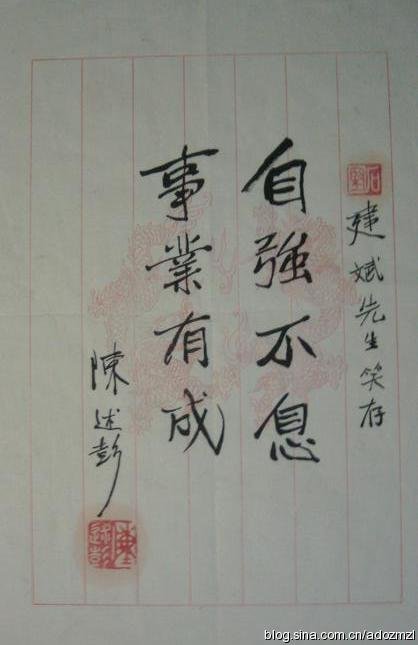 建斌先生笑存
自強不息
事業有成
陳述彭
陳述彭
blog.sina.com.cn/adozmzl